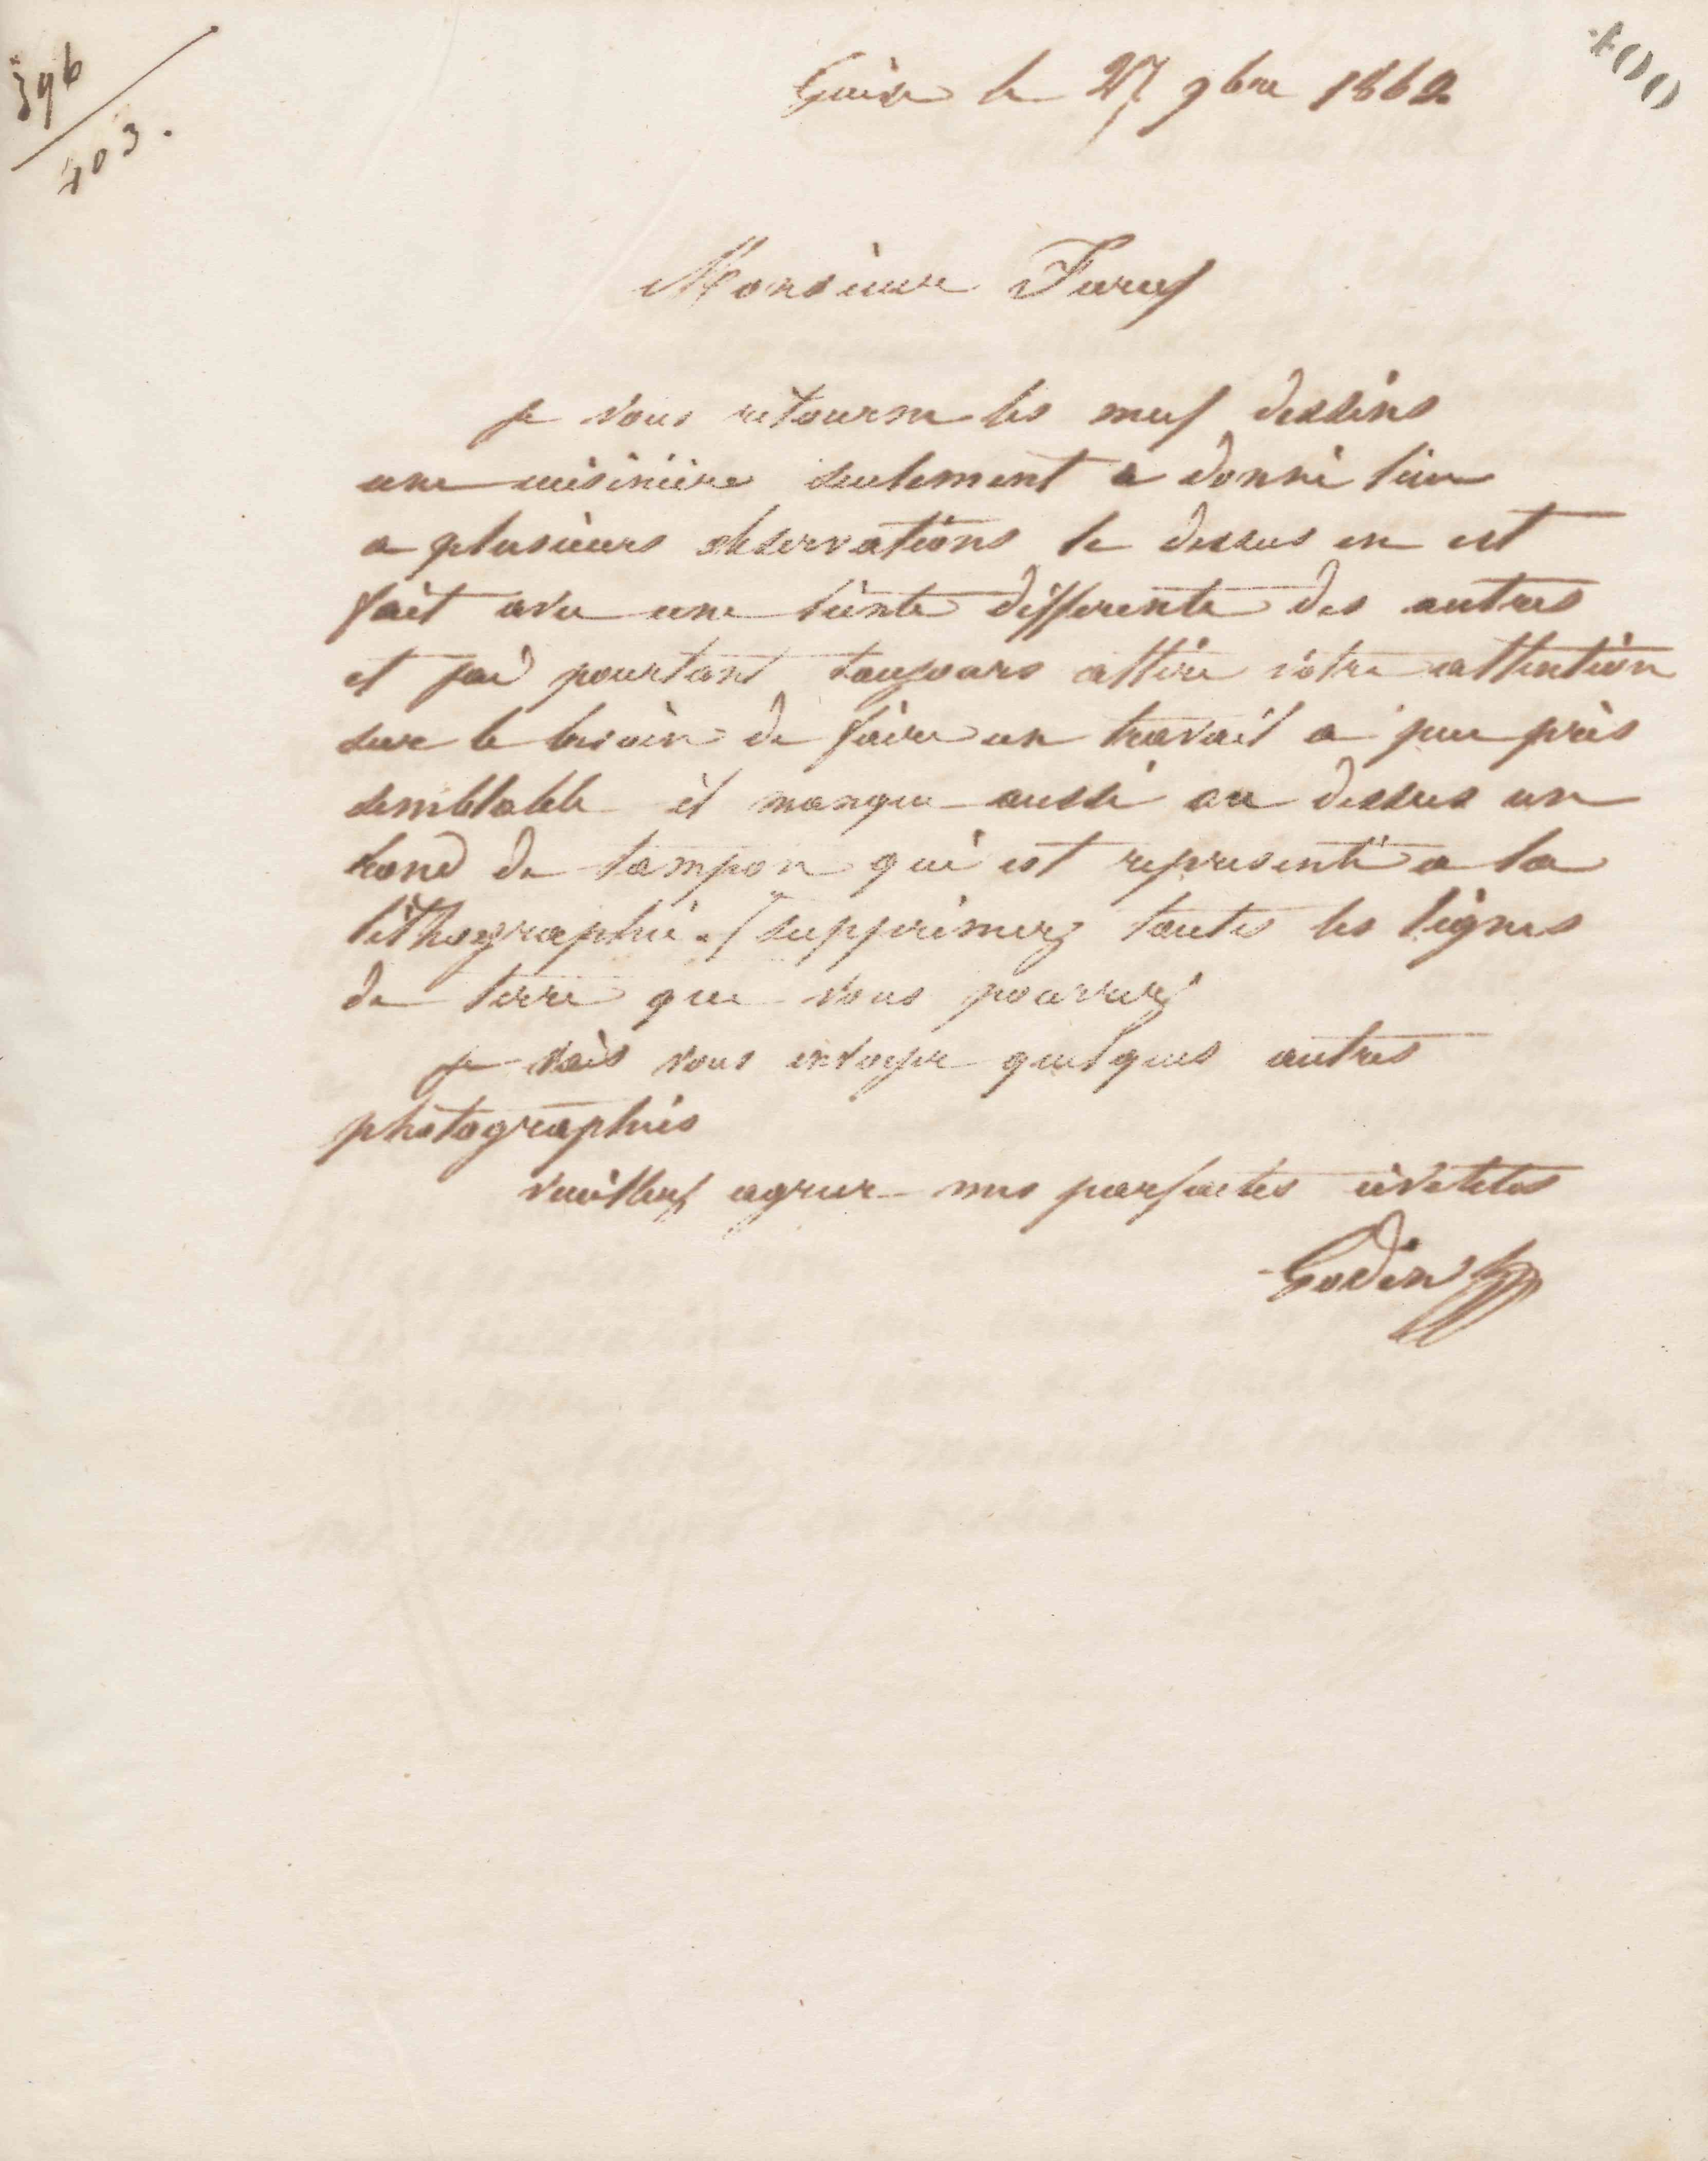 396
403.
400
Guise le 27 9bre 1862
Monsieur
je vous retourne les neuf dessins
une cuisinière seulement a donné lieu
a plusieurs observations le dessus en est
fait avec une teinte differente des autres
et jai pourtant toujours attiré votre attention
sur le besoin de faire un travail a peu près
semblable il manque aussi au dessus un
rond de tampon qui est representé a la
lithographie. / supprimez toutes les lignes
de terre que vous pourrez
je vais vous envoyer quelques autres
photographies
veuillez agreer mes parfaites civilités
Godin